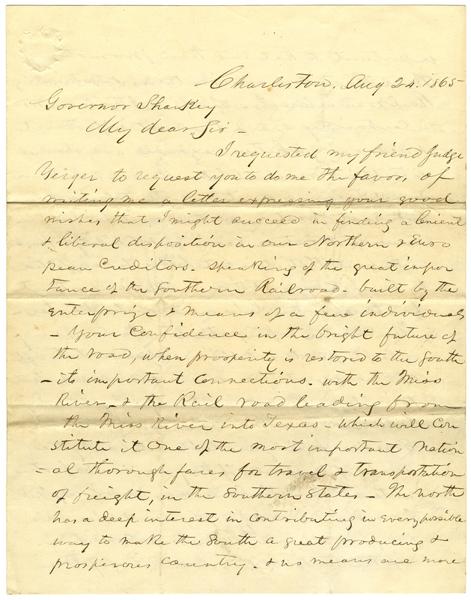 Charleston. Aug 24. 1865
Governor Sharkey
My dear Sir -
I requested my friend Judge
Yerger to request you to do me the favor of
writing me a letter expressing your good
wishes that I might succeed in finding a lenient
& liberal disposition in our Northern & Euro
pean Creditors. Speaking of the great impor
tance of the Southern Railroad - built by the
enterprize & means of a few individuals
- Your Confidence in the bright future of
the road, when prosperity is restored to the South
- its important connections. with the Miss
River - & the Rail road leading from
the Miss River into Texas - which will Con
stitute it One of the most important Nation
- al thorough fares for travel & transportation
of freight, in the Southern States - The north
has a deep interest in contributing in every possible
way to make the South a great producing &
prosperous country. & no means are more